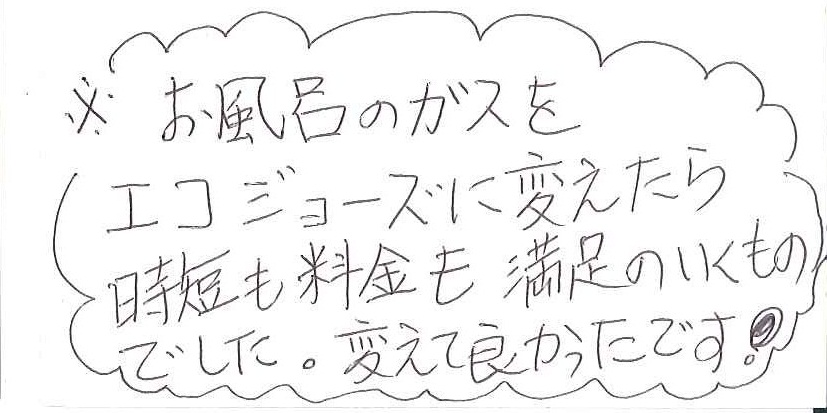 ※ お風呂のガスを
エコジョーズに変えたら
時短も料金も満足のいくもの
でした。変えて良かったです!